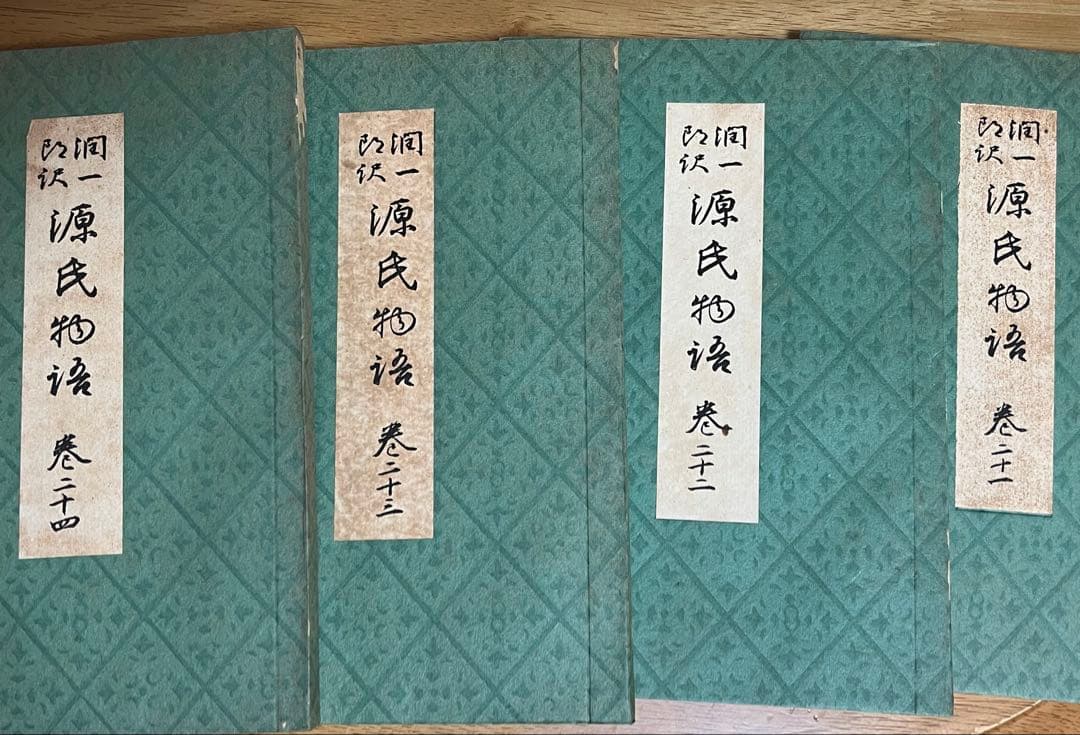 潤一
郎訳
源氏物語 巻二十四
潤一
郎訳
源氏物語 巻二十三
潤一
郎訳
源氏物語 巻二十二
潤一
郎訳
源氏物語 巻二十一